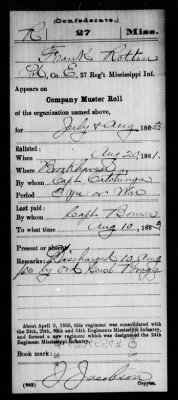 (Confederate.)
R 27 Miss.
Frank Rotten
Co. E, 27 Reg't Mississippi Inf.
Appears on
Company Muster Roll
of the organization named above,
for July & Aug, 1862
Enlisted:
When Aug 20, 1861.
Where Brookhaven
By whom Capt
Period
Last paid:
By whom Capt Bowen
To what time Aug 10, 1862
Present or absent
Remarks: Discharged 10 Aug
by order Genl Bragg
About April 9, 1865, this regiment was consolidated with
the 24th, 29th, 30th and 34th Regiments Mississippi Infantry,
and the new regiment thus formed was designated the 24th
Regiment Mississippi Infantry.
Book mark:
(642) J. Jacobson Copyist.